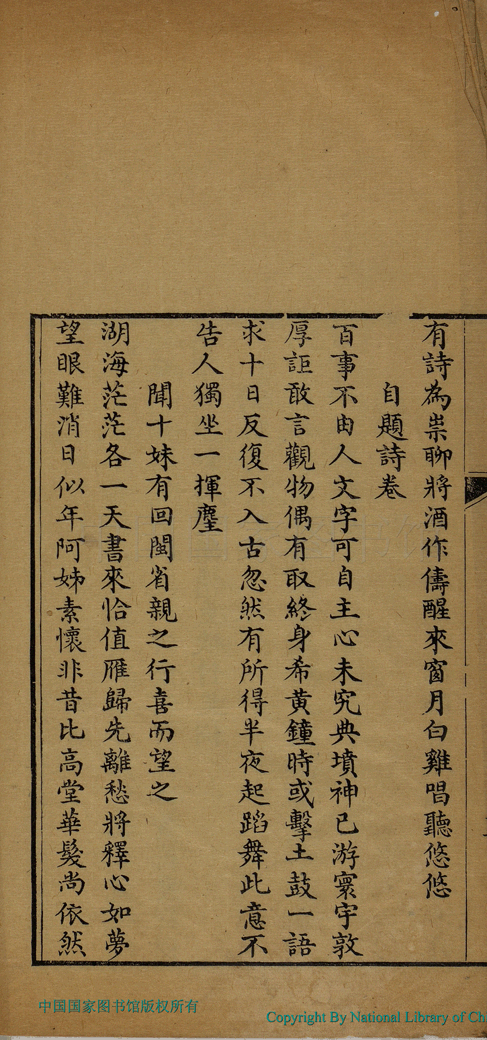 有詩為祟聊將酒作儔醒來窗月白雞唱聽悠悠
自題詩卷
百事不由人文字可自主心未究典墳神已游寰宇敦
厚詎敢言觀物偶有取終身希黃鐘時或擊土鼓一語
求十日反復不入古忽然有所得半夜起蹈舞此意不
告人獨坐一揮麈
聞十妹有回閩省親之行喜而望之
湖海茫茫各一天書來恰值雁歸先離愁將釋心如夢
望眼難消日似年阿姊素懷非昔比高堂華髮尚依然
中国国家图书馆版权所有
Copyright By National Library of Ch